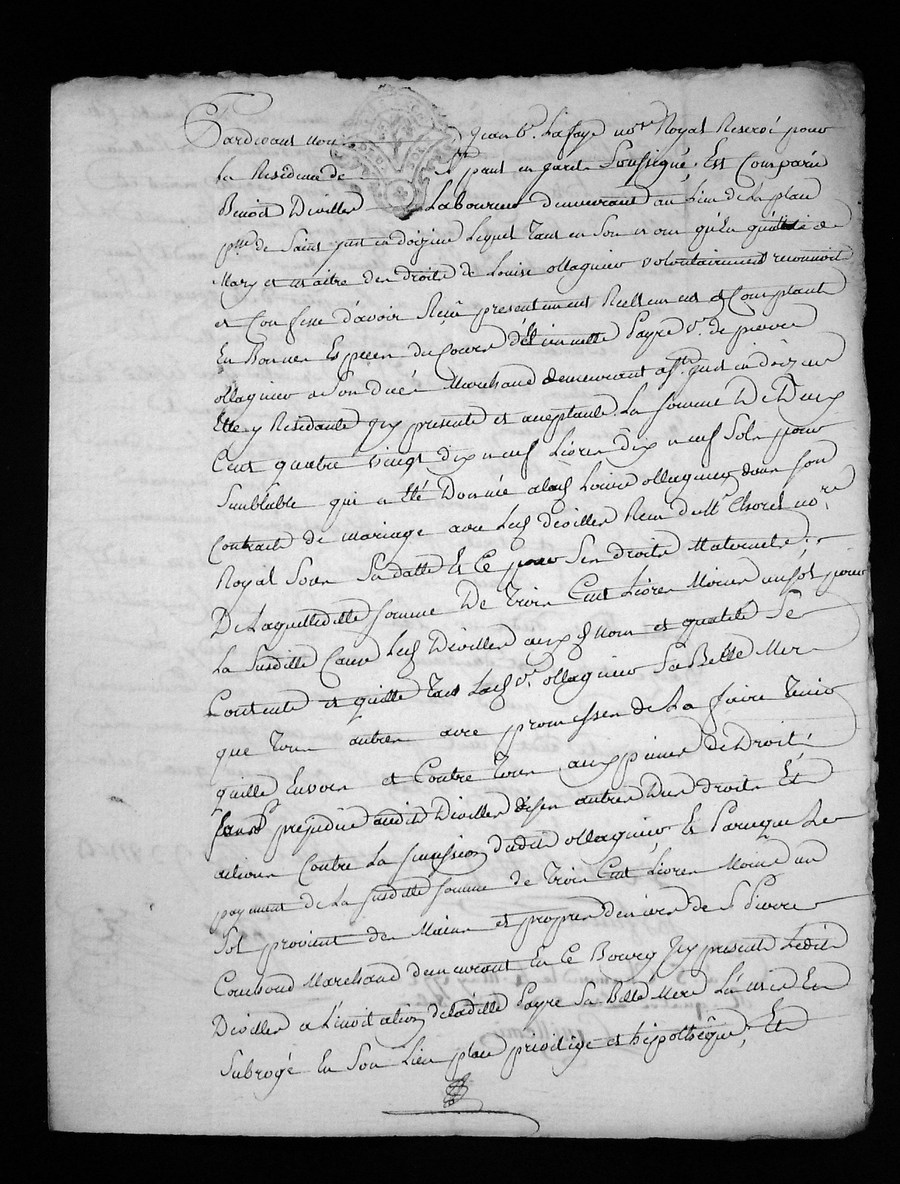 Pardevant nous Jean Bt. Lafaye nore Royal Reservé pour
la Residence de St paul en jarês Soussigné, Est Comparu
Benoit Deville Laboureur demeurant au Lieu de la plau
psse de Saint just en doizieux Lequel tant en Son nom qu'En qualité de
Mary et maitre des droits de Louise ollagnier volontairement reconnoit
et Confesse d'avoir Reçû presentement Reellement et Comptant
En Bonnes Especes du Cours d'Etiennette payre ve. de pierre
ollagnier a Son decés Marchand demeurant a St. just en doizieux
Elle y Residante Icy presente et aceptante La somme De Deux
Cent quatre vingt dix neuf Livres dix neuf Sols pour
Semblable qui a été Donnée a lad. Louise ollagnier dans Son
Contract de mariage avec Led. deville Reçu de Mr Thores nore.
Royal Sous Sa datte Et Ce pour Ses droits Maternels,
De laquelle ditte somme De trois Cent Livres Moins un sol pour
La Susditte Cause Led. Deville aux d. Nom et qualité Se
Contente et quitte tant Lad. ve. ollagnier Sa Belle Mere
que tous autres avec promesses de La faire tenir
quitte Envers et Contre tous aux peines de Droit,
sans prejudice audit Deville de ses autres Dus droits Et
actions Contre La succession dudit ollagnier, Et Parceque Le
payement de La susditte somme de trois Cent Livres Moins un
Sol provient des Mains et propres deniers de Sr. pierre
Couchoud Marchand demeurant En Ce Bourg Icy present Ledit
Deville a L'invitation de laditte payre Sa Belle Mere L'a mis Et
Subrogé En Son Lieu place privilége et hipothêque, Et